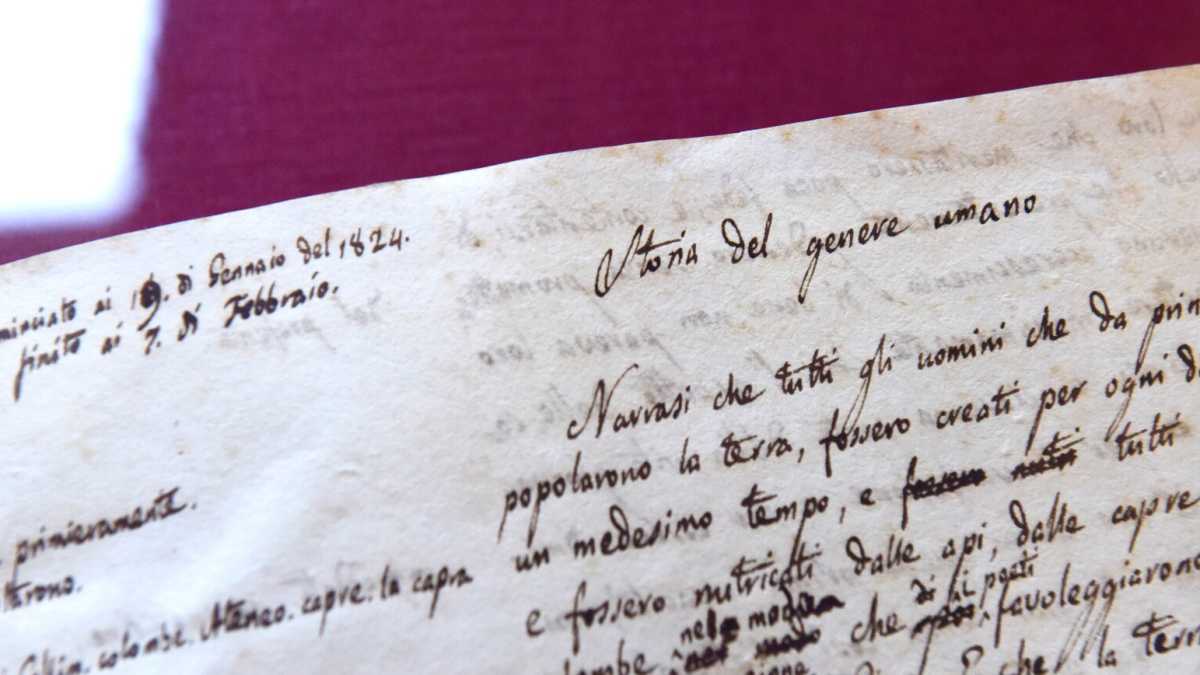 minciato ai 19. di Gennaio del 1824.
finito ai 7. di Febbraio.
Storia del genere umano
Narrasi che tutti gli uomini che da prin
popolarono la terra, fossero creati per ogni d
un medesimo tempo, e fossero nutri tutti
e fossero nutricati dalle api, dalle capre
nella modo che di poeti favoleggiarono
che la terr
primieramente.
tarono.
colombe. Ateneo. capre. la capra